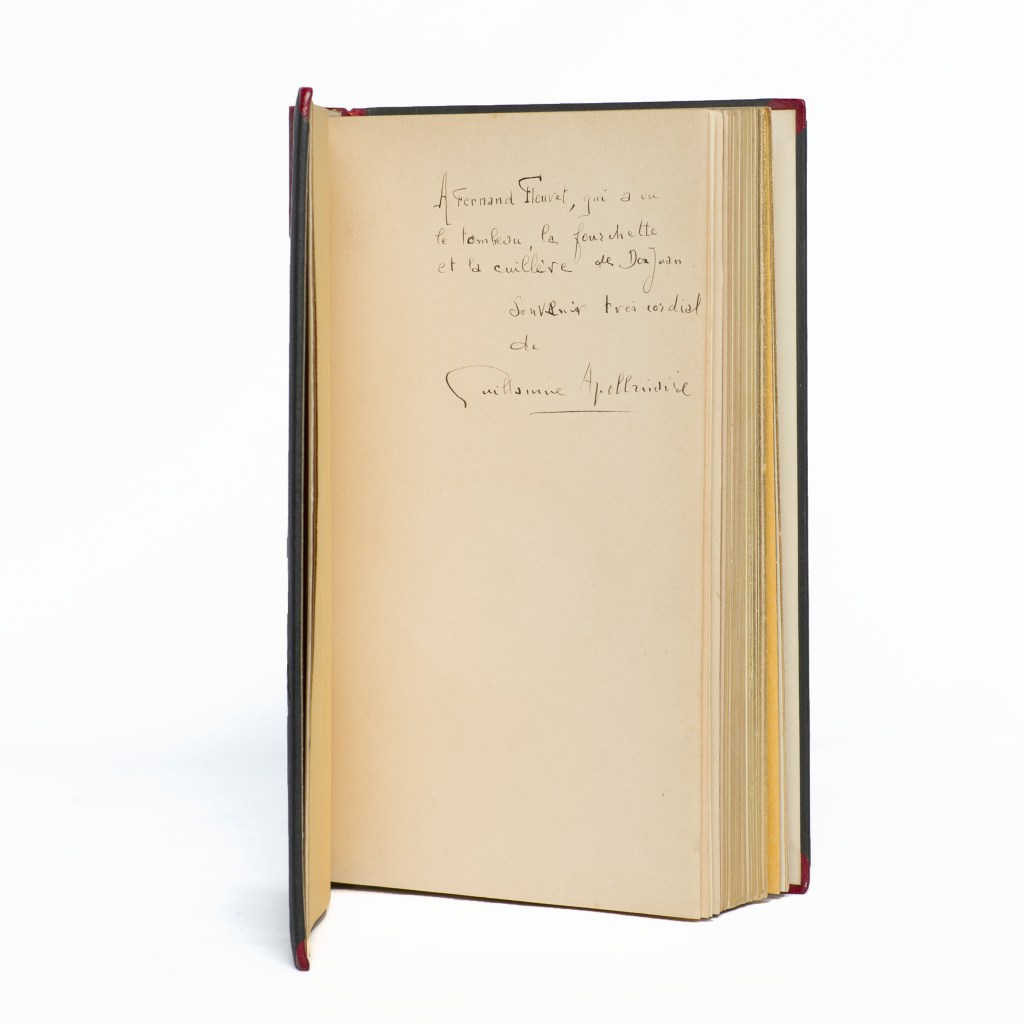 A Fernand Fleuret, qui a vu
le tombeau, la fourchette
et la cuillère de Don Juan
Souvenir très cordial
de
Guillaume Apollinaire